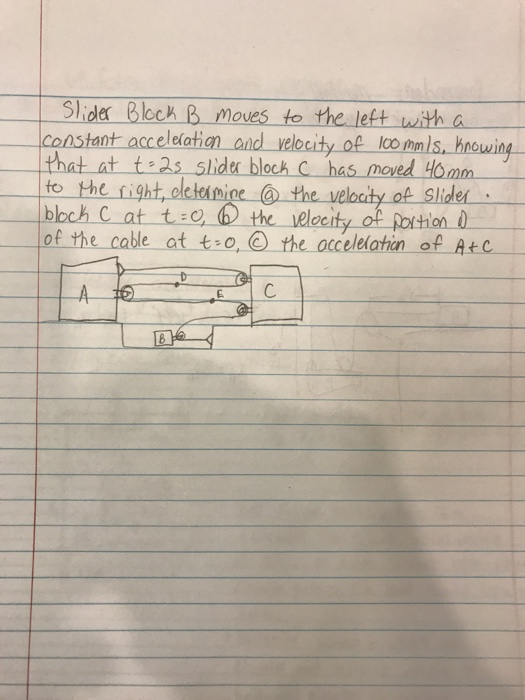 Slider Block B moves to the left with a
constant acceleration and velocity of 100 mm/s, Knowing
that at t=2s slider block C has moved 40mm
to the right, determine ⓐ the velocity of Slider
block C at t=0, ⓑ the velocity of portion D
of the cable at t=0, ⓒ the acceleration of A+C
D
A
E
C
B